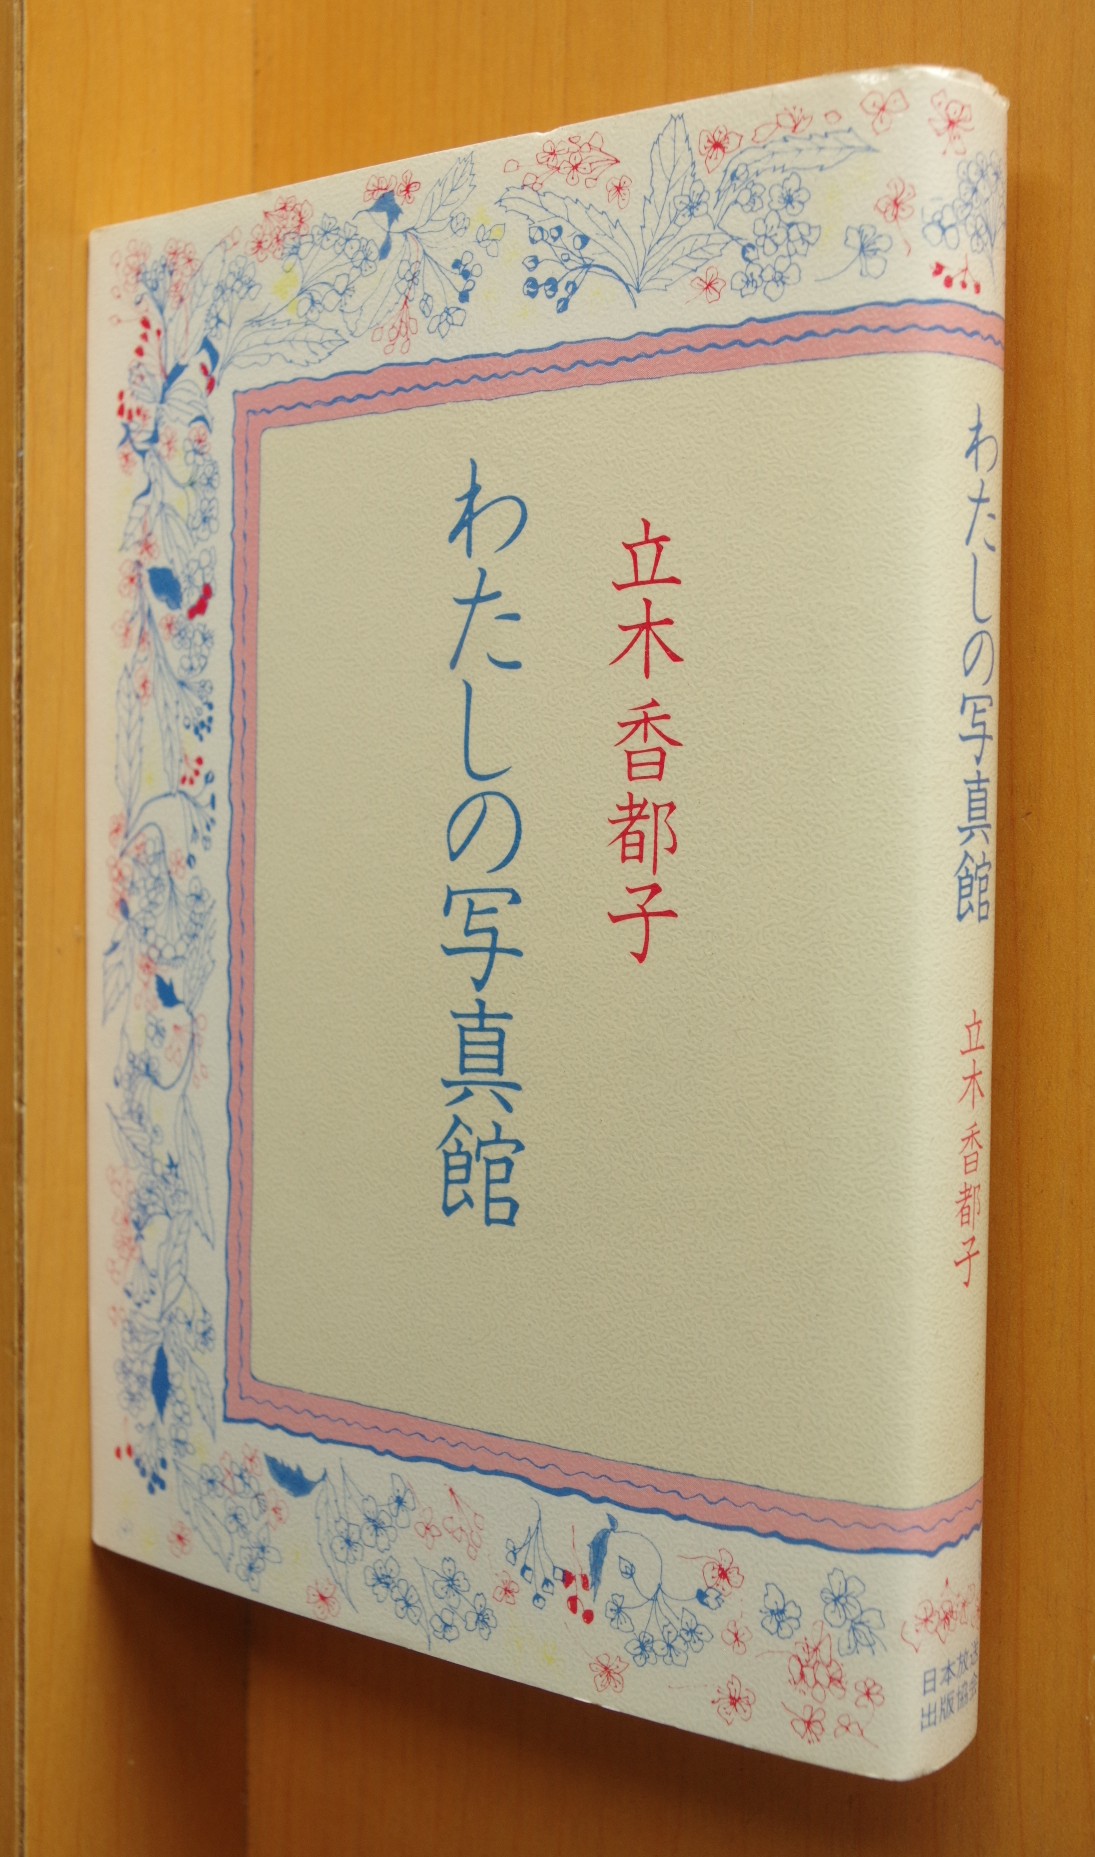 立木香都子
わたしの写真館
わたしの写真館
立木香都子
日本放送
出版協会